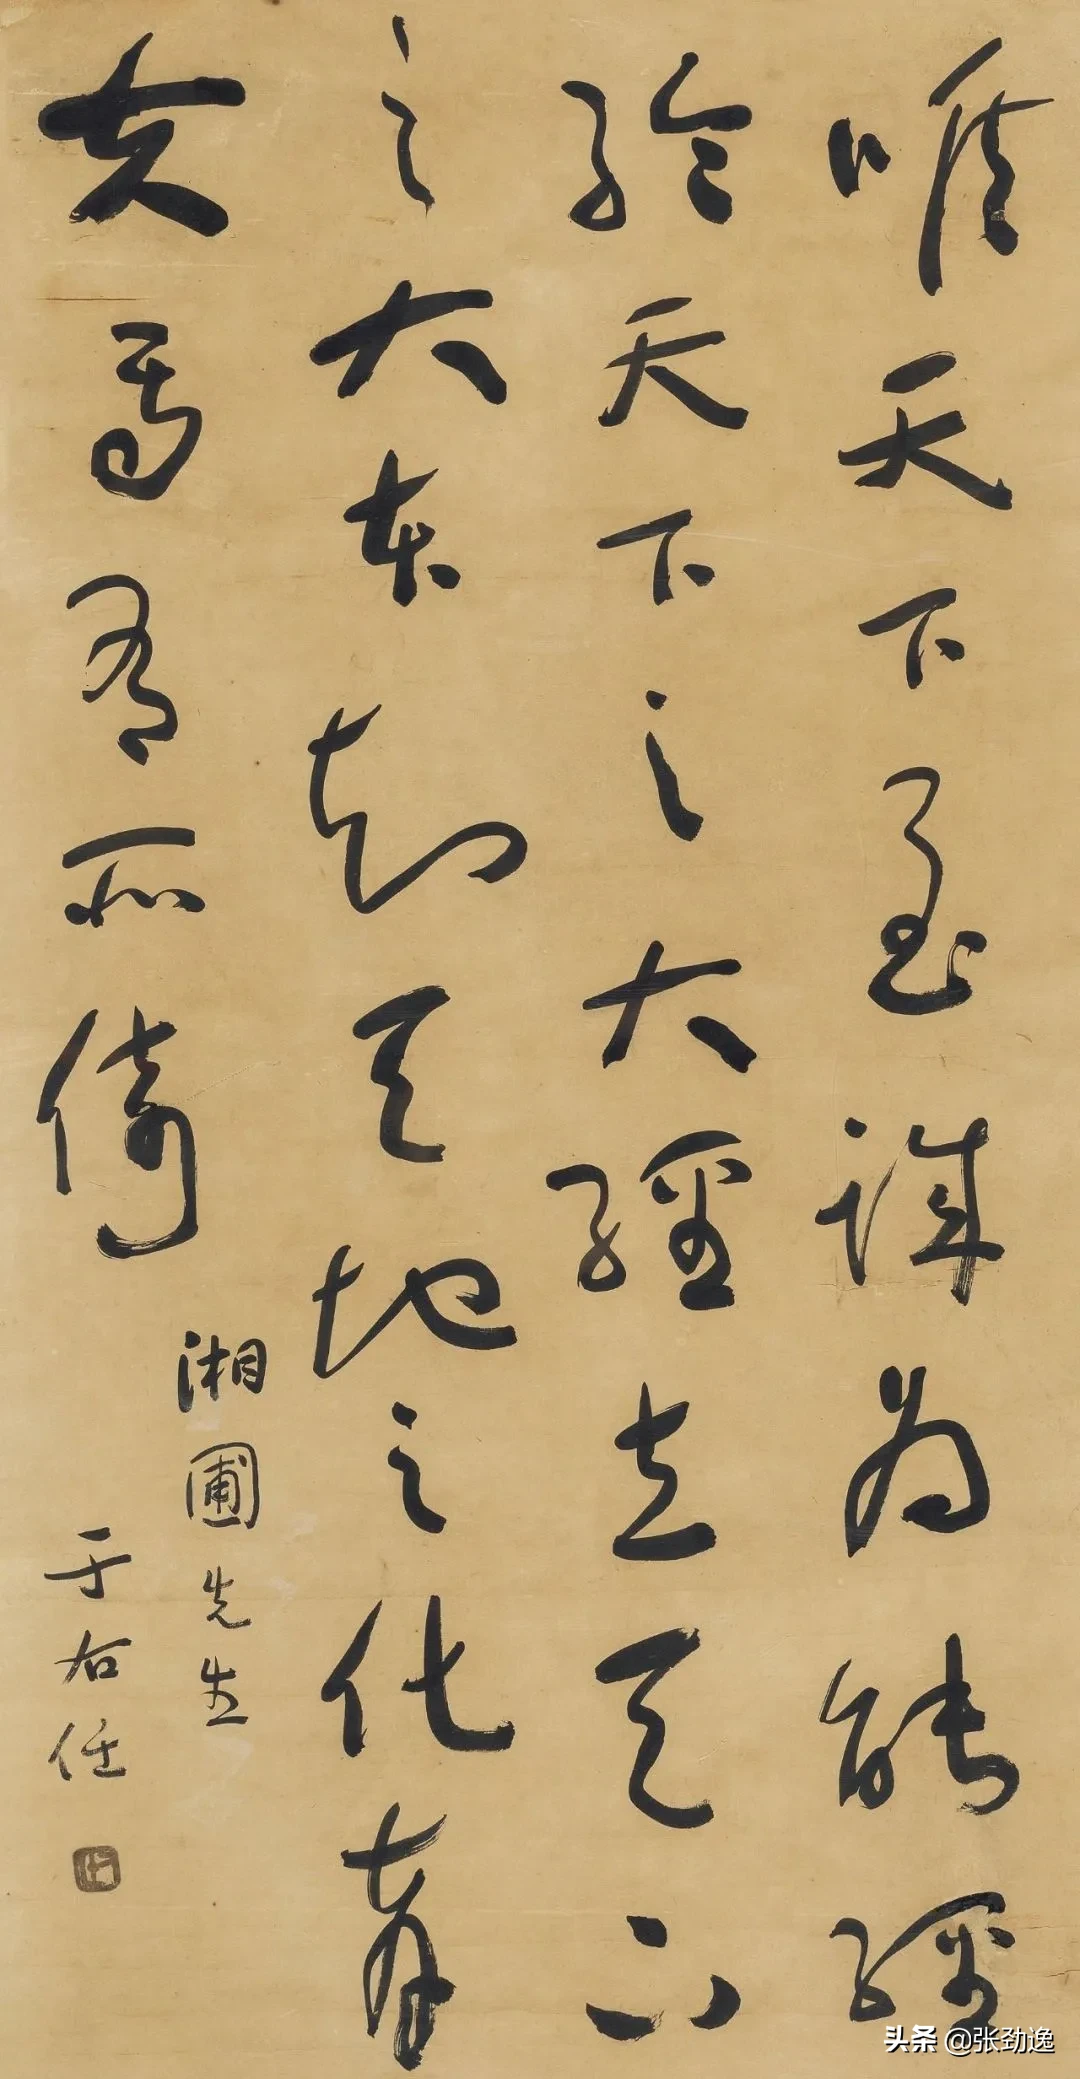 唯天下至誠為能經
綸天下之大經立天下
之大本知天地之化育
夫焉有所倚
湘圃先生
于右任
头条 @张劲逸